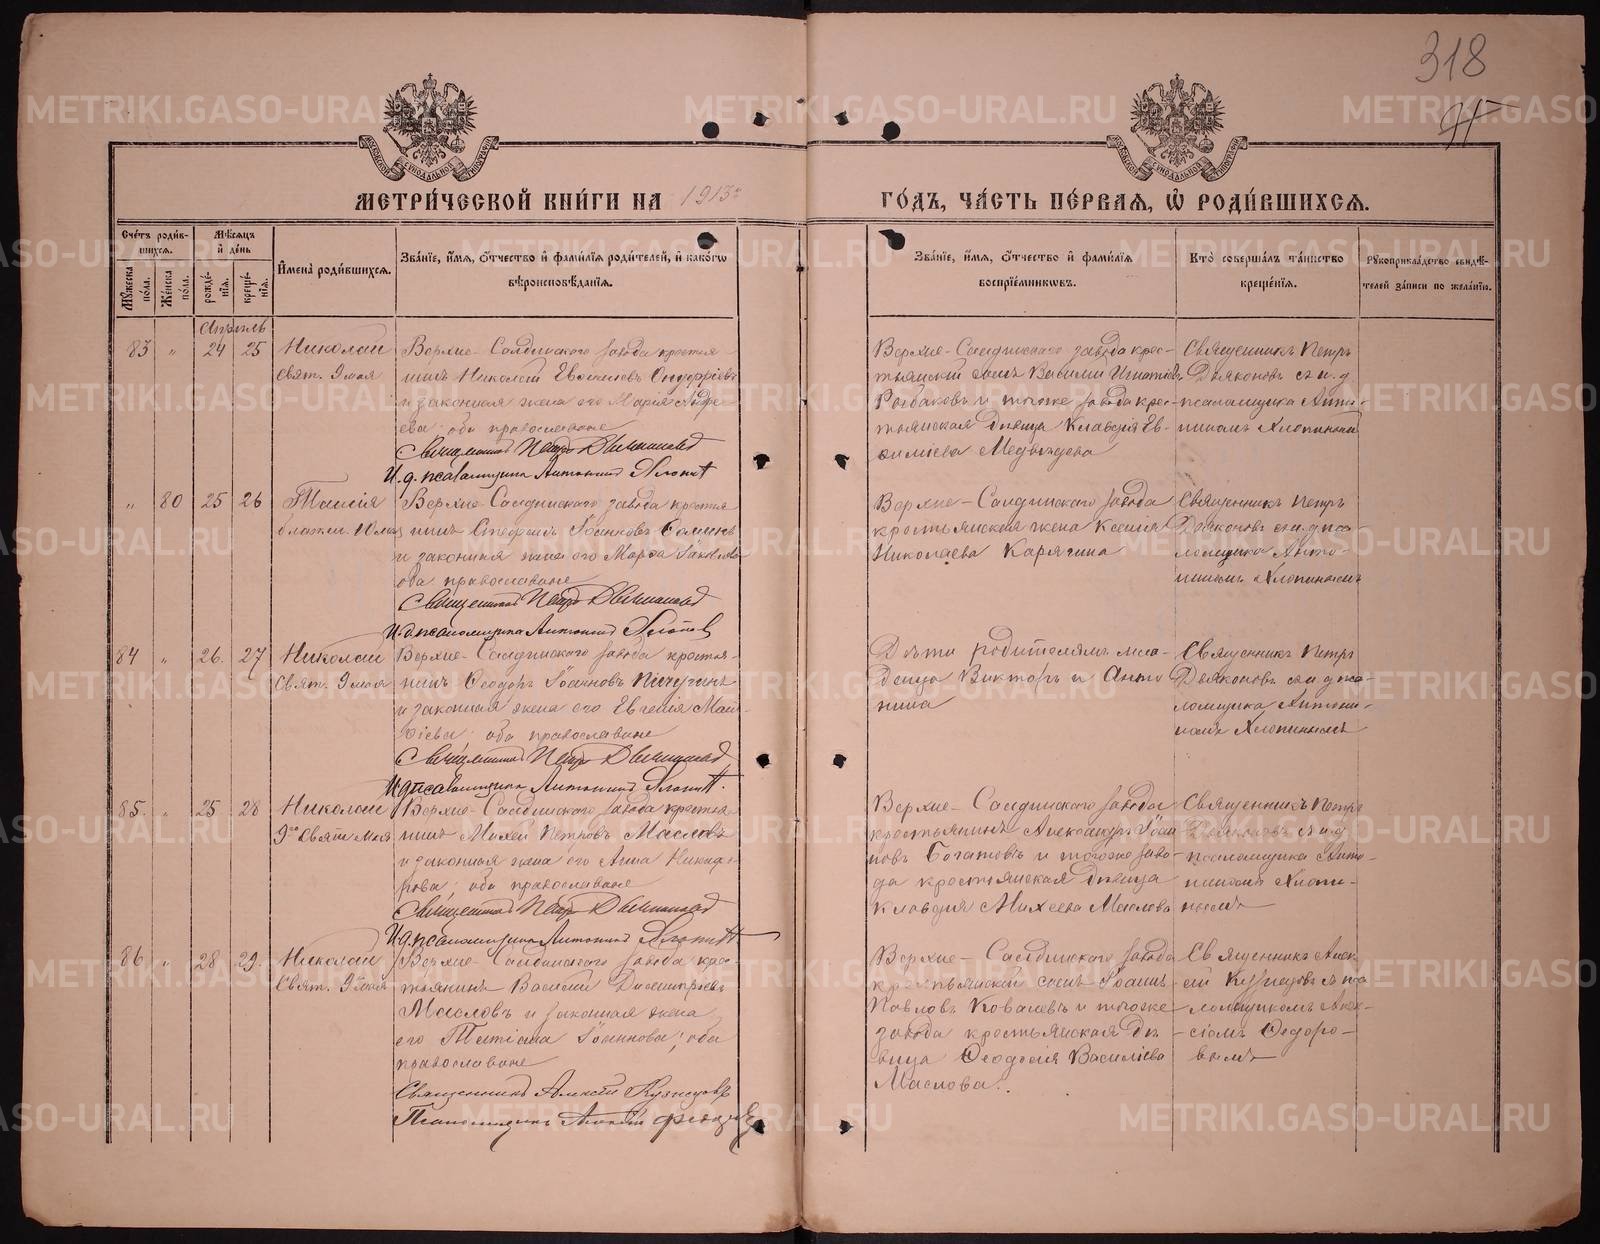 318
МЕТРИ́ЧЕСКОЙ КНИ́ГИ НА 1913й
ГО́ДЪ, ЧА́СТЬ ПЕ́РВАЯ, Ѡ РОДИ́ВШИХСЯ.
Сче́тъ роди́в-
шихся.
Мѣ́сяцъ
и҆ де́нь
Мꙋ́жеска
по́ла.
Же́нска
по́ла.
рожде́-
нїѧ.
креще́-
нїѧ.
И҆мена̀ роди́вшихся.
Зва́нїе, и҆́мѧ, ѻ҆́тчество и҆ фами́лїѧ роди́телей, и҆ како́гѡ
вѣроисповѣ́данїѧ.
Зва́нїе, и҆́мѧ, ѻ҆́тчество и҆ фами́лїѧ
воспрїе́мникѡвъ.
Кто̀ соверша́лъ та́инство
креще́нїѧ.
Рꙋкоприкла́дство свидѣ́-
телей за́писи по жела́нїю.
Апрѣль
83 „ 24 25 Николай
Свят. 9 мая
Верхне-Салдинскаго завода крестья-
нинъ Николай
и законная жена его Марія Андре-
ева; оба православные
Священникъ Петръ Дьяконовъ
И.д. псаломщика Антонинъ Хлопинъ
Верхне-Салдинскаго завода крес-
тьянскій сынъ Василій Игнатіевъ
и тогоже завода крес-
тьянская дѣвица Клавдія Ев-
Медвѣдева
Священникъ Петръ
Дьяконовъ съ и.д.
псаломщика Анто-
ниномъ Хлопинымъ
„ 80 25 26 Таисія
блажен. 10 мая
Верхне-Салдинскаго завода крестья-
нинъ Стефанъ Іоанновъ
и законная жена его Марѳа
оба православные
Священникъ Петръ Дьяконовъ
И.д. псаломщика Антонинъ Хлопинъ
Верхне-Салдинскаго завода
крестьянская жена Ксенія
Николаева Карягина
Священникъ Петръ
Дьяконовъ съ и.д. пса-
ломщика Анто-
ниномъ Хлопинымъ
84 „ 26. 27 Николай
Свят. 9 мая
Верхне-Салдинскаго завода крестья-
нинъ Ѳеодоръ Іоанновъ Пичугинъ
и законная жена его Евгенія
оба православные
Священникъ Петръ Дьяконовъ
И.д. псаломщика Антонинъ Хлопинъ.
Дѣти родителямъ мла-
денца Викторъ и Анто-
нина
Священникъ Петръ
Дьяконовъ съ и.д. пса-
ломщика Антони-
номъ Хлопинымъ
85. „ 25 28 Николай
9го Святит. Мая
Верхне-Салдинскаго завода крестья-
нинъ Михей Петровъ Масловъ
и законная жена его Анна Никифо-
рова; оба православные
Священникъ Петръ Дьяконовъ
И.д. псаломщика Антонинъ Хлопинъ
Верхне-Салдинскаго завода
крестьянинъ Александръ Іоан-
новъ Богатовъ и тогоже заво-
да крестьянская дѣвица
Клавдія Михеева Маслова
Священникъ Петръ
Дьяконовъ съ и.д.
псаломщика Анто-
ниномъ Хлопи-
нымъ
86 „ 28 29. Николай
Свят. 9 мая
Верхне-Салдинскаго завода крес-
тьянинъ Василій Димитріевъ
Масловъ и законная жена
его Татіана Іоаннова; оба
православные
Священникъ Алексѣй Кузнецовъ
Псаломщикъ Алексѣй
Верхне-Салдинскаго завода
крестьянскій сынъ Іоаннъ
Павловъ Ковалевъ и тогоже
завода крестьянская дѣ-
вица Ѳеодосія Василіева
Маслова.
Священникъ Алек-
сѣй Кузнецовъ съ пса-
ломщикомъ Алек-
сіемъ Ѳедоро-
вымъ